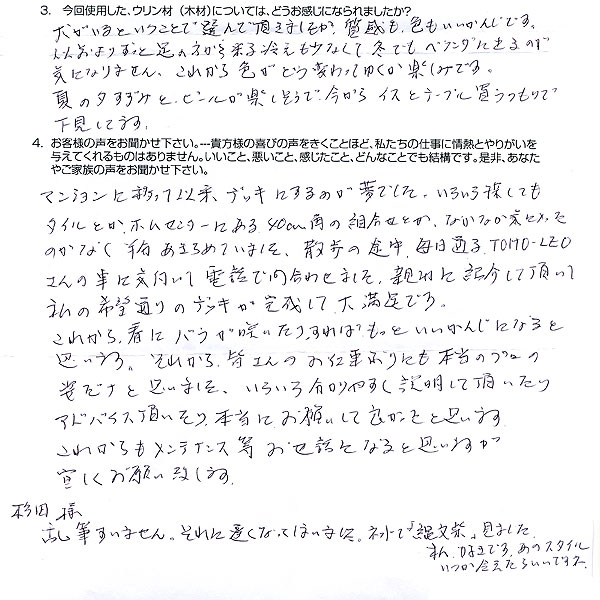 3. 今回使用した、ウリン材（木材）については、どうお感じになられましたか?
犬がいるということで選んで頂きましたが、質感も、色もいいかんじです。
以前よりずっと足の方から来る冷えも少なくて、冬でもベランダに出るのが
気になりません、これから色がどう変わってゆくか楽しみです。
夏の夕すずみと、ビールが楽しそうで、今からイスとテーブル買うつもりで
下見してます。
4. お客様の声をお聞かせ下さい。---貴方様の喜びの声をきくことほど、私たちの仕事に情熱とやりがいを
与えてくれるものはありません。いいこと、悪いこと、感じたこと、どんなことでも結構です。是非、あなた
やご家族の声をお聞かせ下さい。
マンションに移って以来、デッキにするのが夢でした。いろいろ探しても
タイルとか、ホームセンターにある40cm角の組合せとか、なかなか気に入った
のがなく 半分あきらめていました、散歩の途中、毎日通る、TOMO-LEO
さんの事に気付いて 電話で問合わせました、親切に紹介して頂いて
私の希望通りのデッキが完成して、大満足です。
これから、春にバラが咲いたりすれば、もっといいかんじになると
思います。それから、皆さんのお仕事ぶりにも本当のプロの
姿だナと思いました、いろいろ分かりやすく説明して頂いたり
アドバイス頂いたり、本当にお願いして良かったと思います
これからもメンテナンス等 お世話になると思いますが
宜しくお願い致します。
杉田 様
乱筆すいません。それに遅くなってしまいました。ネットで「縄文祭」見ました。
私、好きです。あのスタイル
いつか会えたらいいですネ